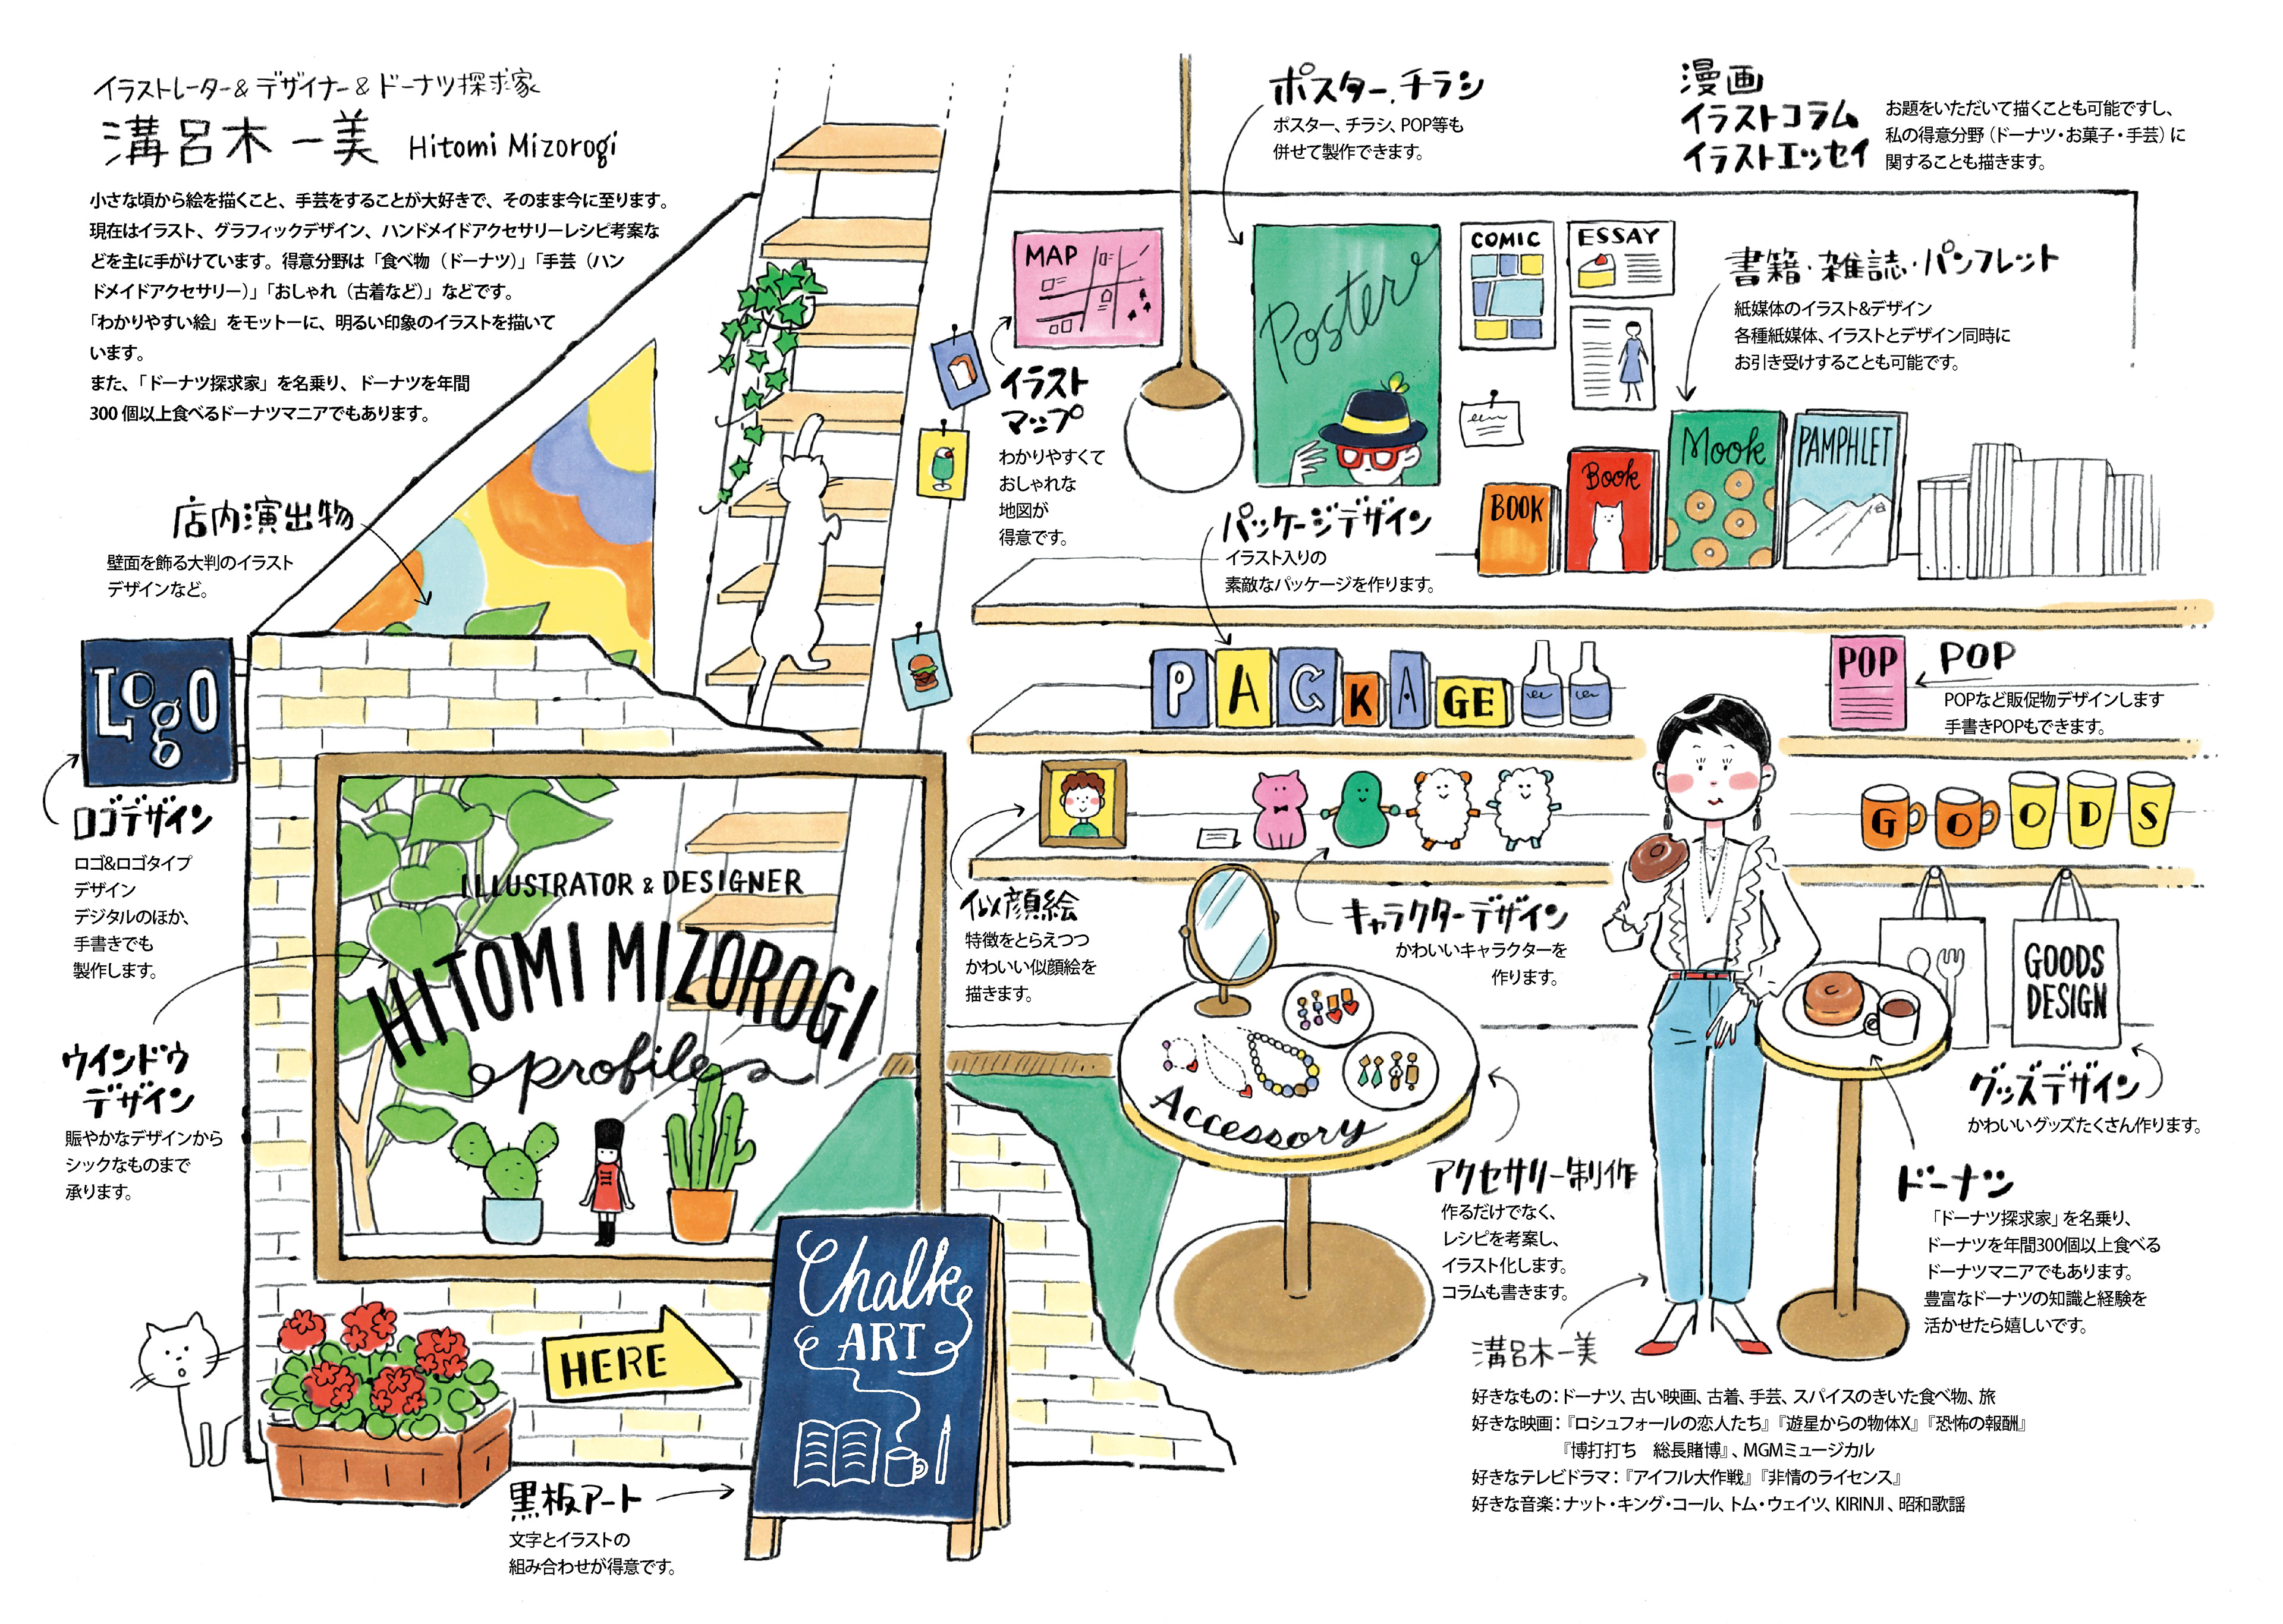 イラストレーター&デザイナー&ドーナツ探求家
溝呂木 一美 Hitomi Mizorogi
小さな頃から絵を描くこと、手芸をすることが大好きで、そのまま今に至ります。
現在はイラスト、グラフィックデザイン、ハンドメイドアクセサリーレシピ考案な
どを主に手がけています。得意分野は「食べ物（ドーナツ）」「手芸（ハン
ドメイドアクセサリー）」「おしゃれ（古着など）」などです。
「わかりやすい絵」をモットーに、明るい印象のイラストを描いて
います。
また、「ドーナツ探求家」を名乗り、ドーナツを年間
300個以上食べるドーナツマニアでもあります。
店内演出物
壁面を飾る大判のイラスト
デザインなど。
Logo
ロゴデザイン
ロゴ&ロゴタイプ
デザイン
デジタルのほか、
手書きでも
製作します。
ウインドウ
デザイン
賑やかなデザインから
シックなものまで
承ります。
ILLUSTRATOR & DESIGNER
HITOMI MIZOROGI
profile
HERE
Chalk
ART
黒板アート
文字とイラストの
組み合わせが得意です。
MAP
イラスト
マップ
わかりやすくて
おしゃれな
地図が
得意です。
ポスター、チラシ
ポスター、チラシ、POP等も
併せて製作できます。
Poster
漫画
イラストコラム
イラストエッセイ
お題をいただいて描くことも可能ですし、
私の得意分野（ドーナツ・お菓子・手芸）に
関することも描きます。
COMIC
ESSAY
書籍・雑誌・パンフレット
紙媒体のイラスト&デザイン
各種紙媒体、イラストとデザイン同時に
お引き受けすることも可能です。
BOOK
Book
Mook
PAMPHLET
パッケージデザイン
イラスト入りの
素敵なパッケージを作ります。
PACKAGE
POP
POP
POPなど販促物デザインします
手書きPOPもできます。
似顔絵
特徴をとらえつつ
かわいい似顔絵を
描きます。
キャラクターデザイン
かわいいキャラクターを
作ります。
GOODS
GOODS
DESIGN
グッズデザイン
かわいいグッズたくさん作ります。
Accessory
アクセサリー制作
作るだけでなく、
レシピを考案し、
イラスト化します。
コラムも書きます。
ドーナツ
「ドーナツ探求家」を名乗り、
ドーナツを年間300個以上食べる
ドーナツマニアでもあります。
豊富なドーナツの知識と経験を
活かせたら嬉しいです。
溝呂木一美
好きなもの：ドーナツ、古い映画、古着、手芸、スパイスのきいた食べ物、旅
好きな映画：『ロシュフォールの恋人たち』『遊星からの物体X』『恐怖の報酬』
『博打打ち　総長賭博』、MGMミュージカル
好きなテレビドラマ：『アイフル大作戦』『非情のライセンス』
好きな音楽：ナット・キング・コール、トム・ウェイツ、KIRINJI、昭和歌謡